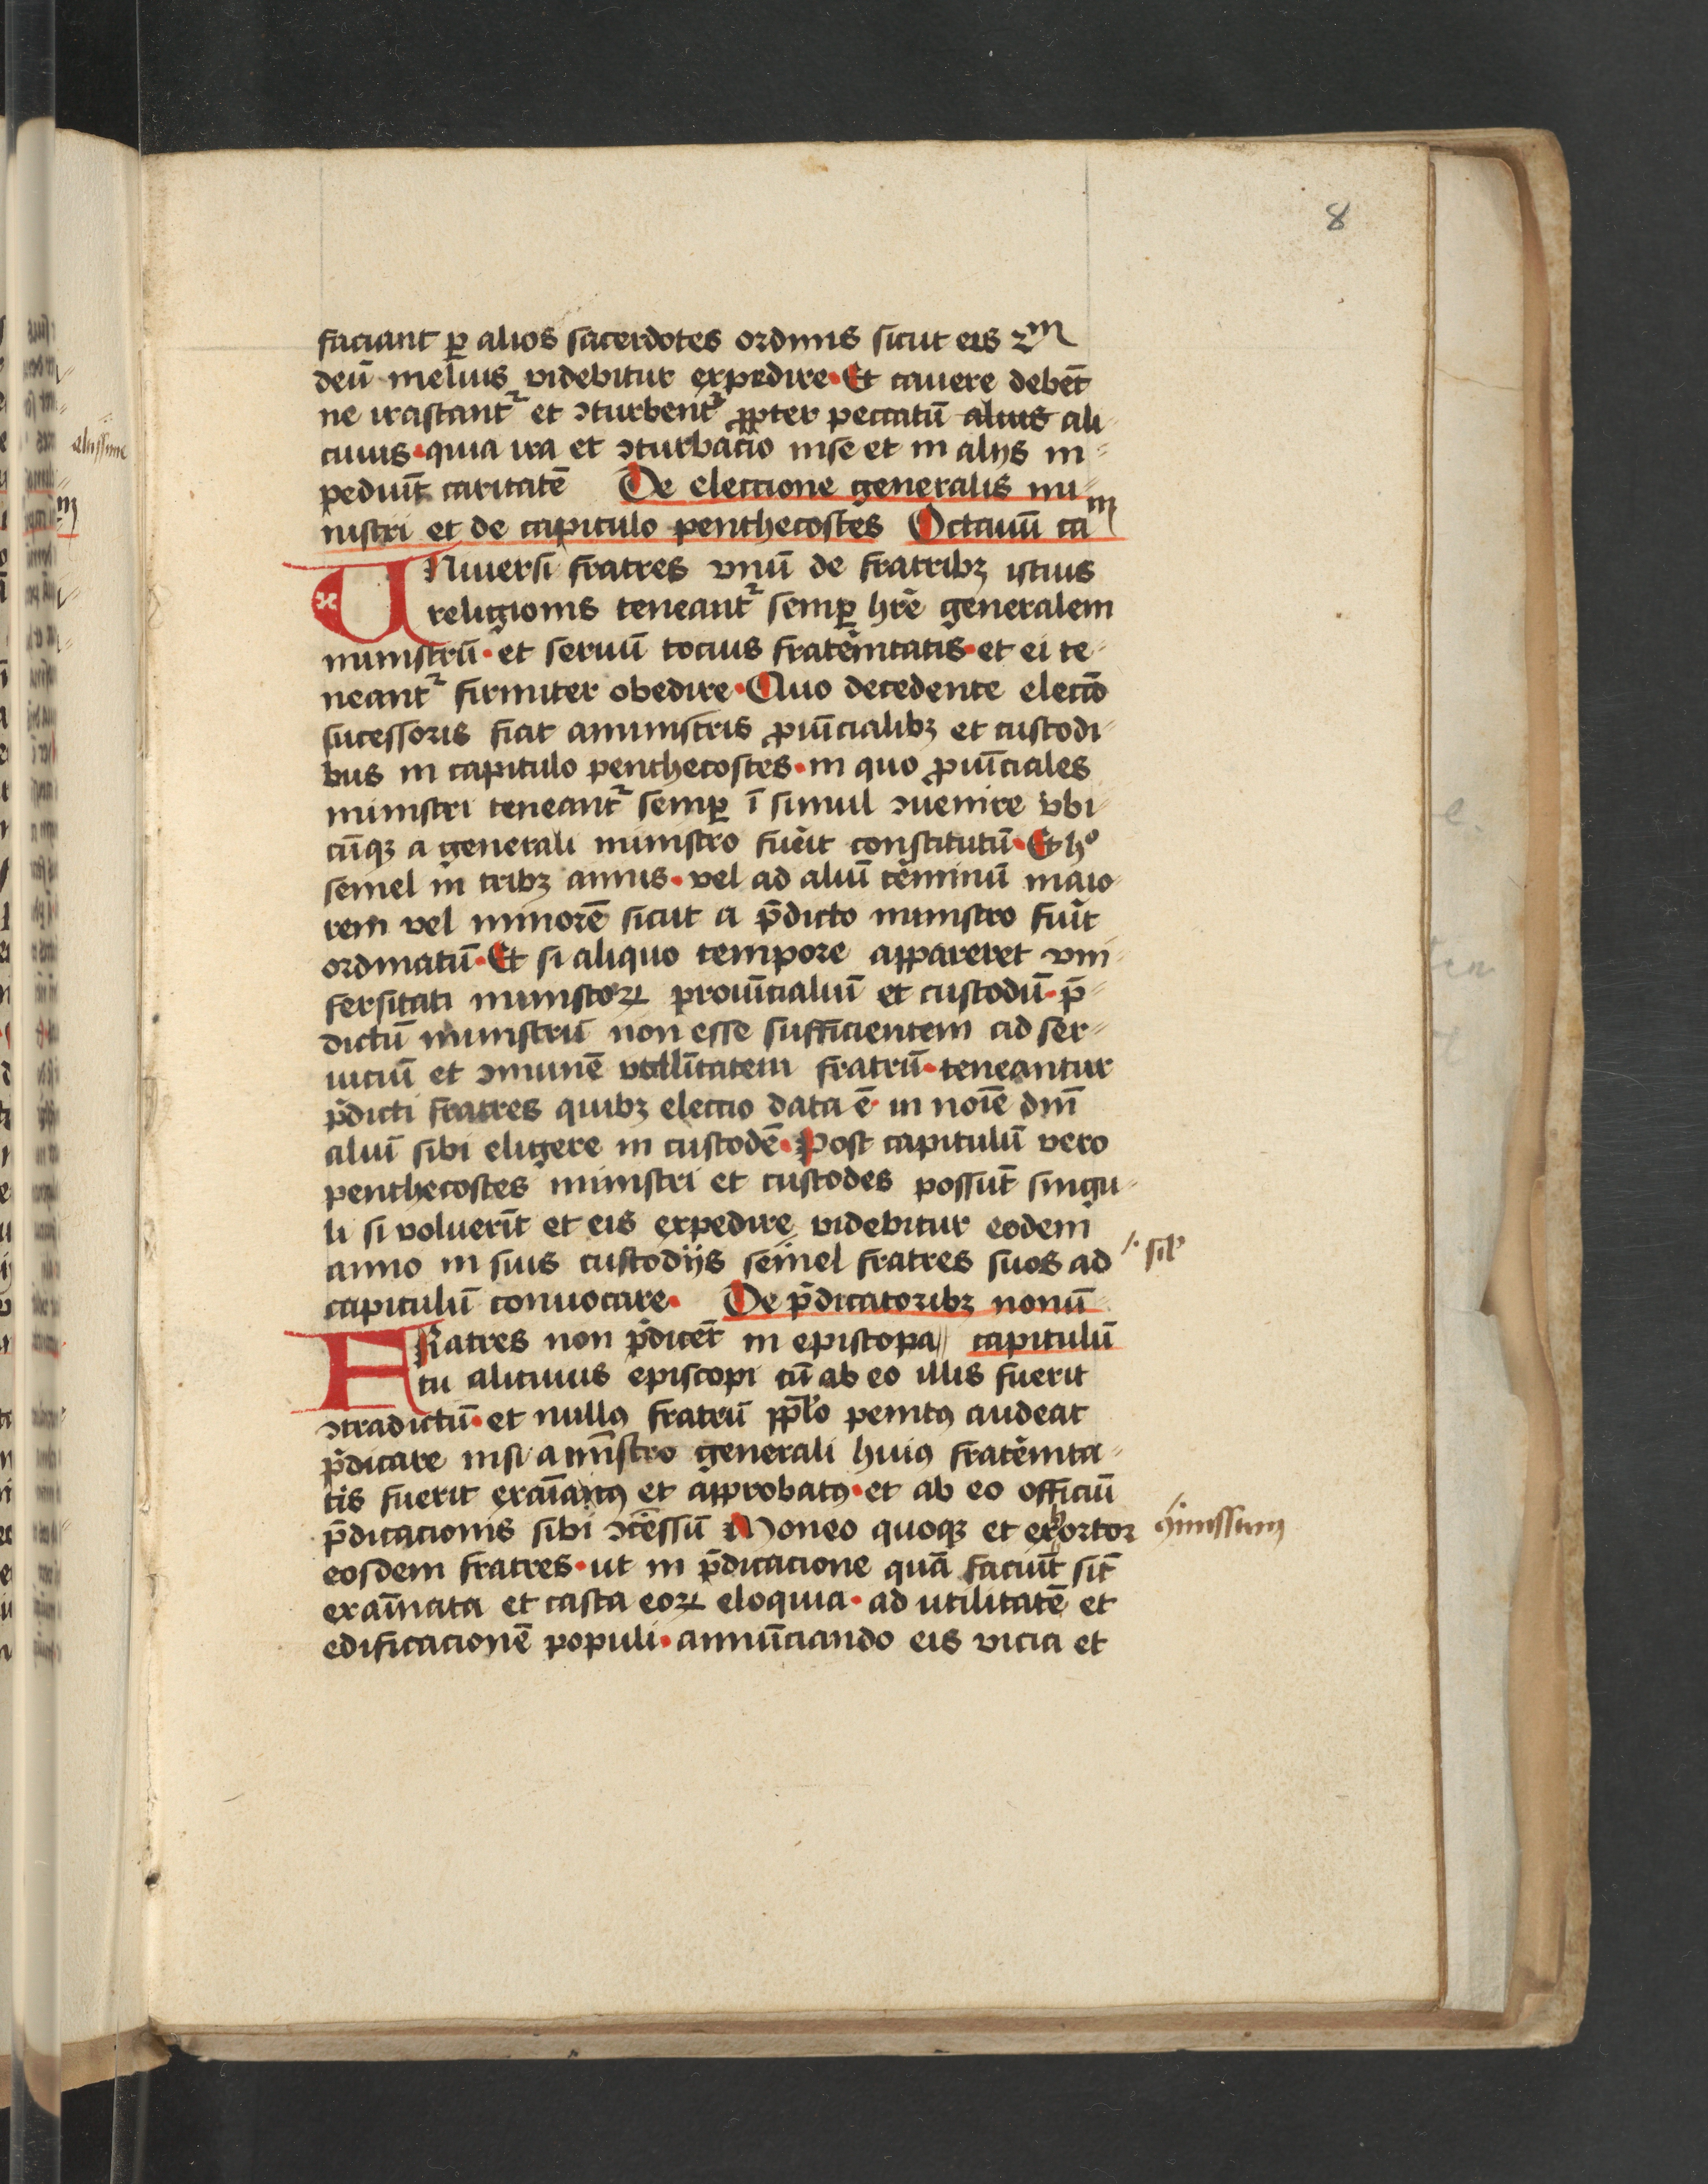 8
faciant ꝑ alios sacerdotes ordinis sicut eis 2m
deū melius videbitur expedire · Et cauere debēt
ne irascant᷑ et ↄturbent᷑ ꝓpter peccatū alius ali-
cuius · quia ira et ↄturbacio in se et in alijs in-
pediūt caritatē De electione generalis mi-
nistri et de capitulo penthecostes Octauū cam
UNiuersi fratres vnū de fratribꝫ istius
religionis teneant᷑ semꝑ hr̄e generalem
ministrū · et seruū tocius frat̄nitatis · et ei te-
neant᷑ firmiter obedire · Quo decedente elec̄io
sucessoris fiat a ministris ꝓuīcialibꝫ et custodi-
bus in capitulo penthecostes · in quo ꝓuīciales
ministri teneant᷑ semꝑ ī simul ↄuenire vbi-
cūqꝫ a generali ministro fūit constitutū · Et ho
semel in tribꝫ annis · vel ad aliū t̄minū maio-
rem vel minorē sicut a p̄dicto ministro fūit
ordinatū · Et si aliquo tempore appareret vni-
fersitati ministroꝝ prouīcialiū et custodū · p̄-
dictū ministrū non esse sufficientem ad ser-
uiciū et ↄmunē vtilītatem fratrū · teneantur
p̄dicti fratres quibꝫ electio data ē · in noīe dnī
aliū sibi eligere in custodē · Post capitulū vero
penthecostes ministri et custodes possūt singu-
li si voluerīt et eis expedire videbitur eodem
anno in suis custodijs semel fratres suos ad
capitulū conuocare · De p̄dicatoribꝫ nonū
FRatres non p̄dicēt in episcopa capitulū
tu alicuius episcopi cū ab eo illis fuerit
ↄtradictū · et nullꝯ fratrū ppl̄o penitꝯ audeat
p̄dicare nisi a mīstro generali huiꝯ frat̄nita-
tis fuerit exaīatꝯ et approbatꝯ · et ab eo officiū
p̄dicacionis sibi ↄcēssū Moneo quoqꝫ et exhortor
eosdem fratres · ut in p̄dicacione quā faciūt sīt
exaīnata et casta eoꝝ eloquia · ad utilitatē et
edificacionē populi · annūciando eis vicia et